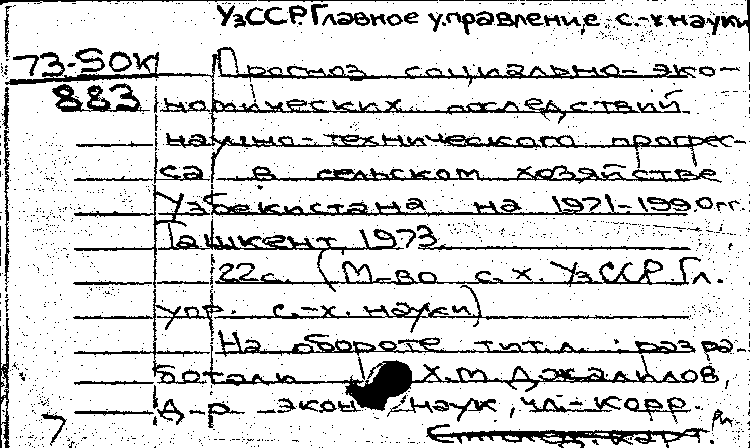 УзССР. Главное управление с.-х науки
73-50К
883
Прогноз социально-эко-
номических последствий
научно-технического прогрес-
са в сельском хозяйстве
Узбекистана на 1971-1990гг.
Ташкент, 1973.
22с. (М-во с.х. УзССР. Гл.
упр. с.-х. науки)
На обороте тит.л.: разра-
ботали Х.М Джалилов,
д-р экон наук, чл.-корр.